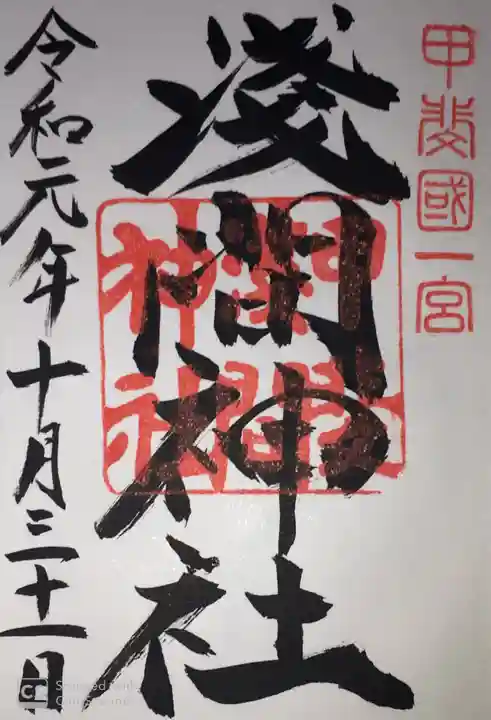 甲斐國一宮
淺間神社
令和元年十月三十一日